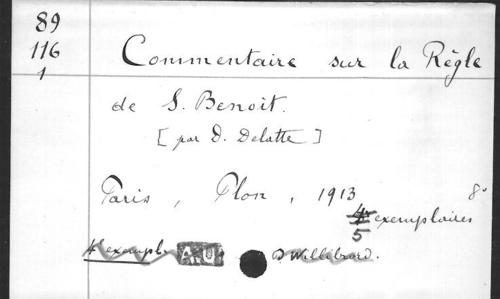 89
116
1
Commentaire sur la Règle
de S. Benoit.
[ par D. Delatte ]
Paris, Plon, 1913 8°
4 exemplaires
5
4e exempl. A.U. D. Willibrord.